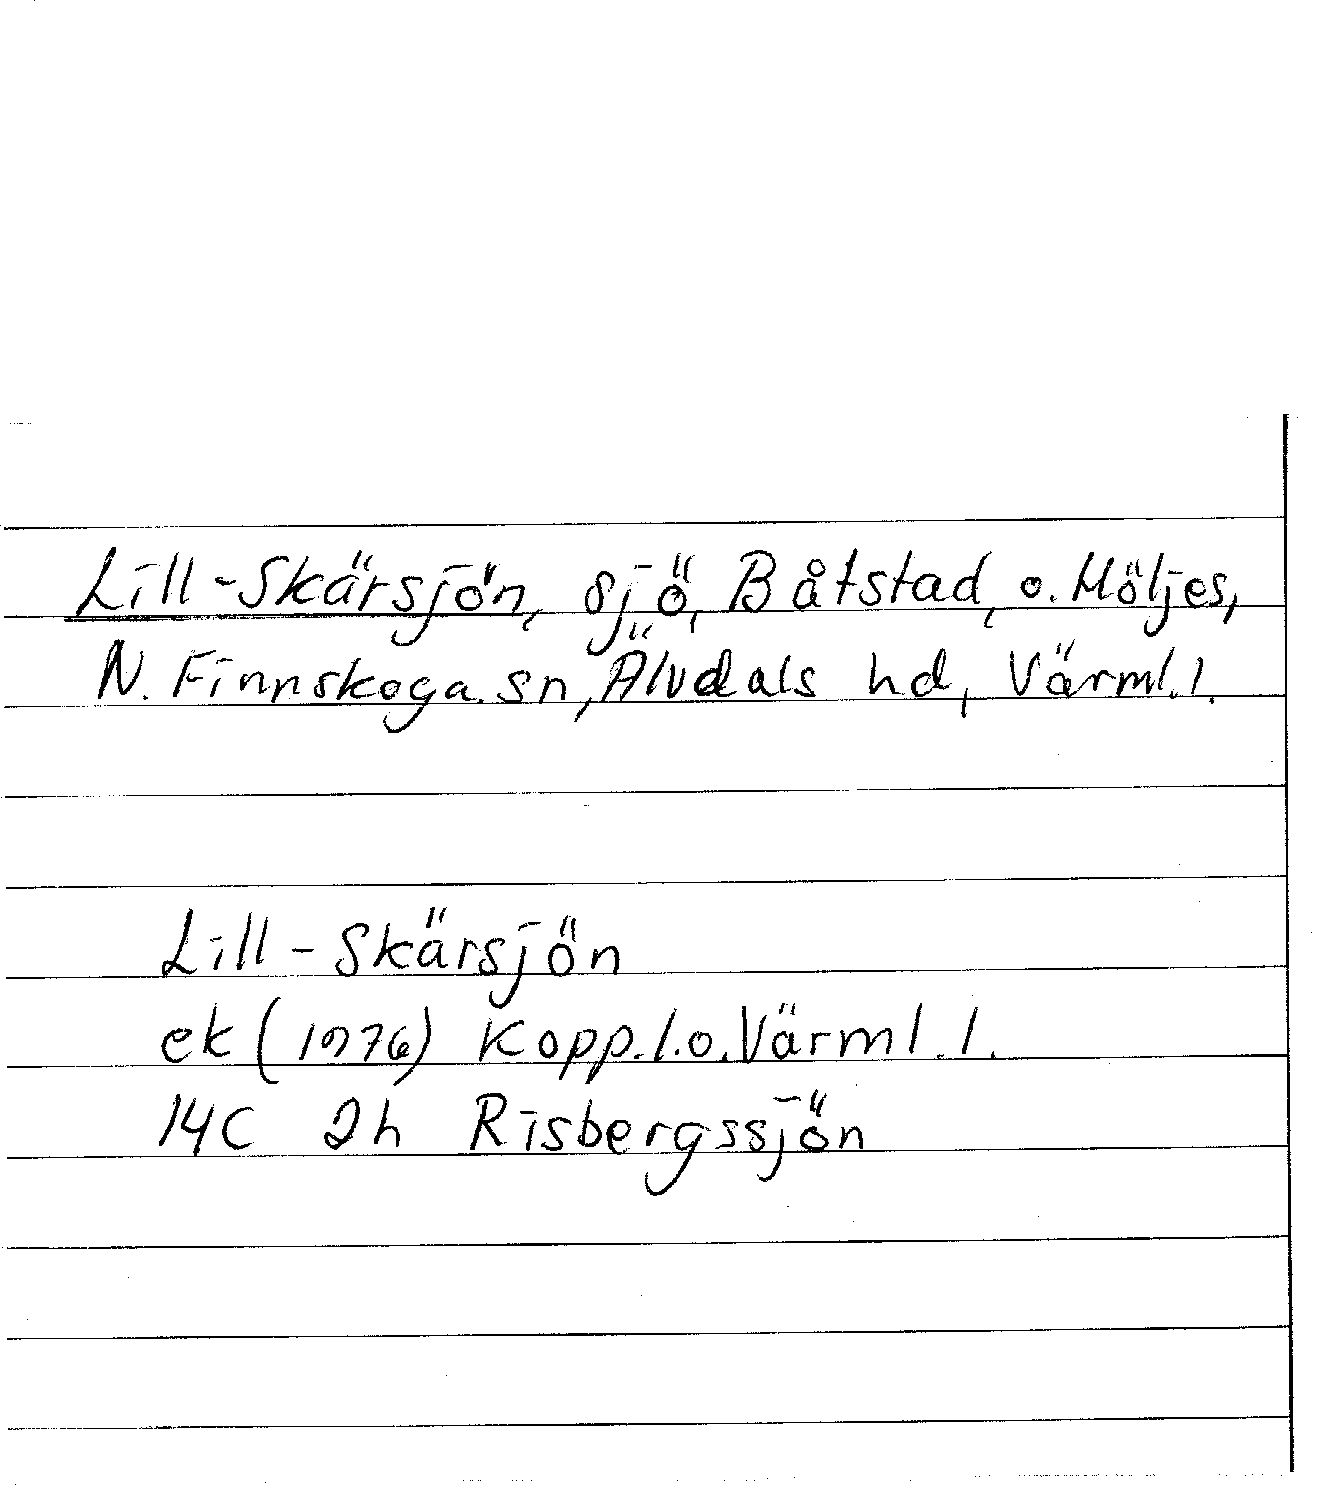 Lill-Skärsjön, sjö, Båtstad, o. Höljes,
N. Finnskoga sn, Älvdals hd, Värml. l.
Lill-Skärsjön
ek (1976) Kopp. l. o. Värml. l.
14C 2h Risbergssjön